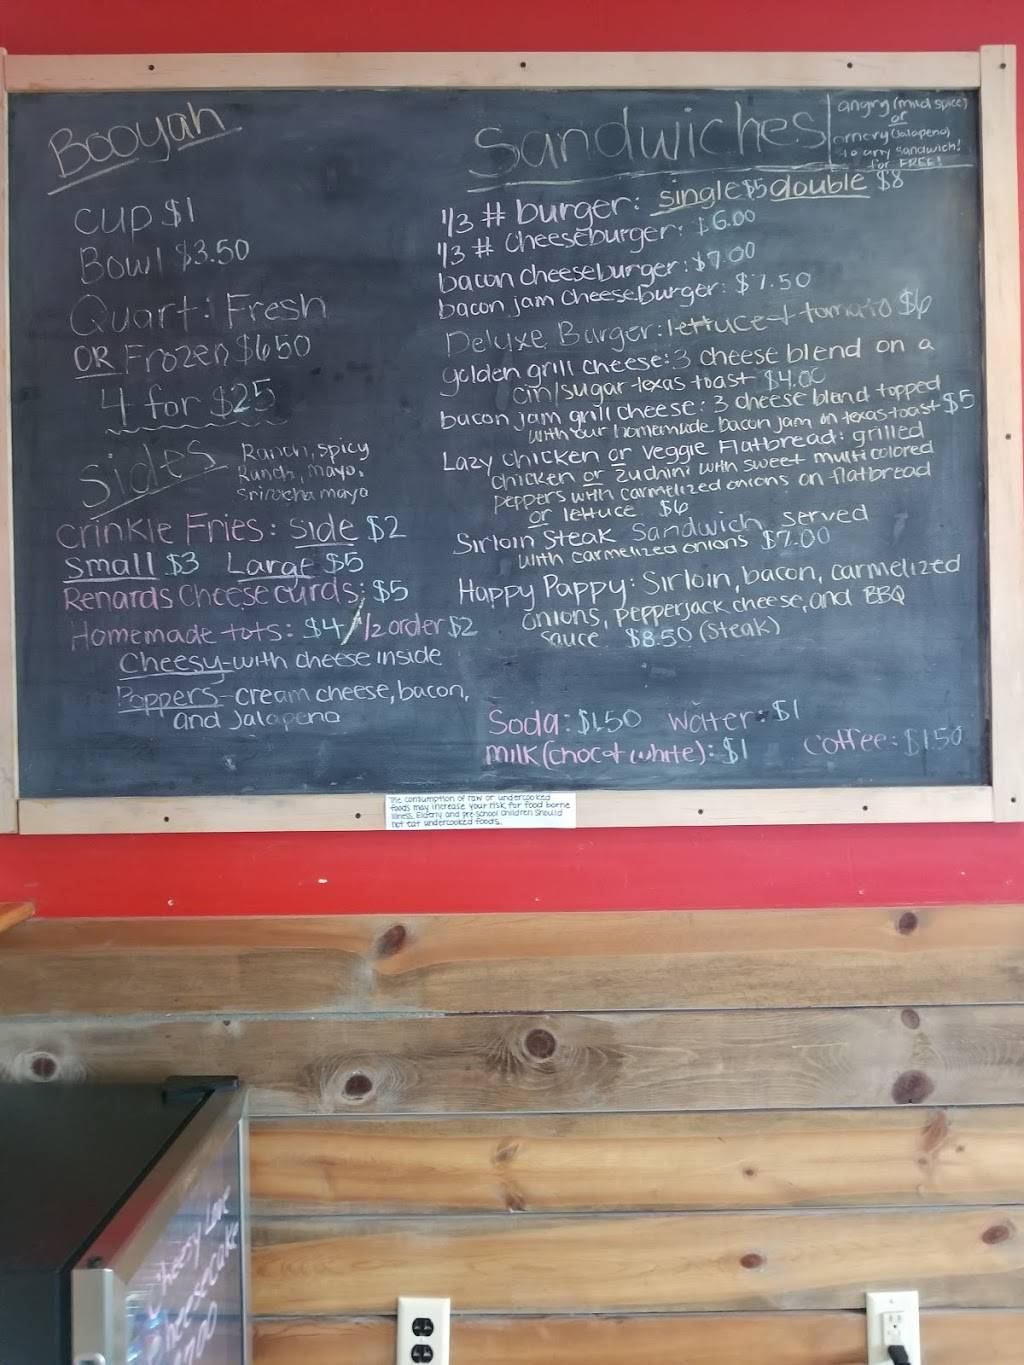 Booyah
cup $1
Bowl $3.50
Quart: Fresh
OR Frozen $6.50
4 for $25
Sides
Ranch, spicy
Ranch, mayo,
Sriracha mayo
Crinkle Fries: Side $2
Small $3 Large $5
Renards Cheese curds: $5
Homemade tots: $4/ 1/2 order $2
Cheesy-with cheese inside
Poppers-cream cheese, bacon,
and Jalapeno
Sandwiches
angry (mild spice)
or
ornery (Jalapeno)
to any sandwich!
for FREE!
1/3 # burger: single $5 double $8
1/3 # Cheeseburger: $6.00
bacon cheeseburger: $7.00
bacon jam cheeseburger: $7.50
Deluxe Burger: lettuce + tomato $6
golden grill cheese: 3 cheese blend on a
cin/sugar texas toast $4.00
bacon jam grill cheese: 3 cheese blend topped
with our homemade bacon jam on texas toast $5
Lazy chicken or veggie Flatbread: grilled
chicken or Zuchini with sweet multicolored
peppers with carmelized onions on flatbread
or lettuce $6
Sirloin Steak Sandwich served
with carmelized onions $7.00
Happy Pappy: Sirloin, bacon, carmelized
onions, pepperjack cheese, and BBQ
sauce $8.50 (Steak)
Soda: $1.50 Water $1
Milk (choc or white): $1 Coffee: $1.50
The consumption of raw or undercooked
foods may increase your risk for food borne
illness. Elderly and pre-school children should
not eat undercooked foods.
Cheesy Love
Cheesecake